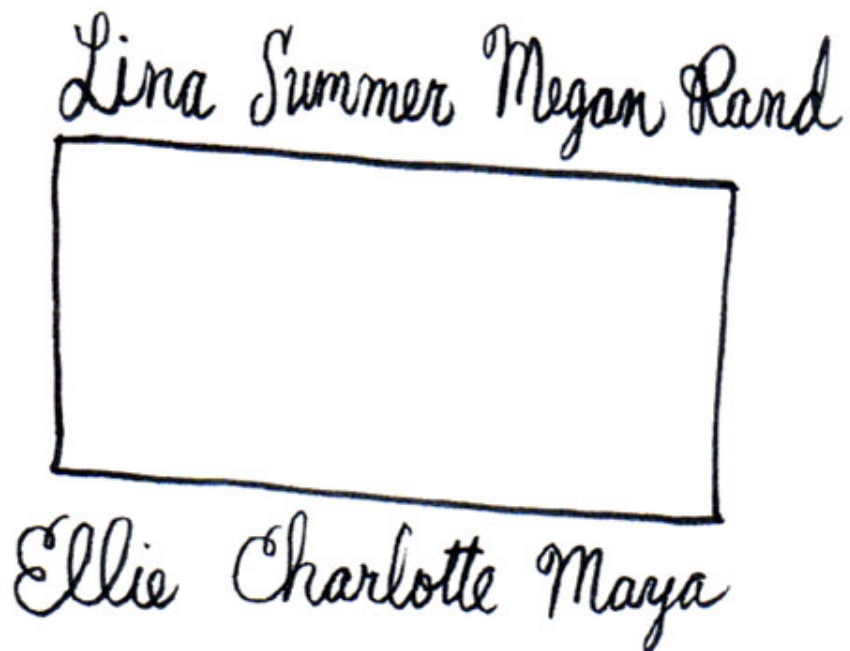 Lina Summer Megan Rand
Ellie Charlotte Maya